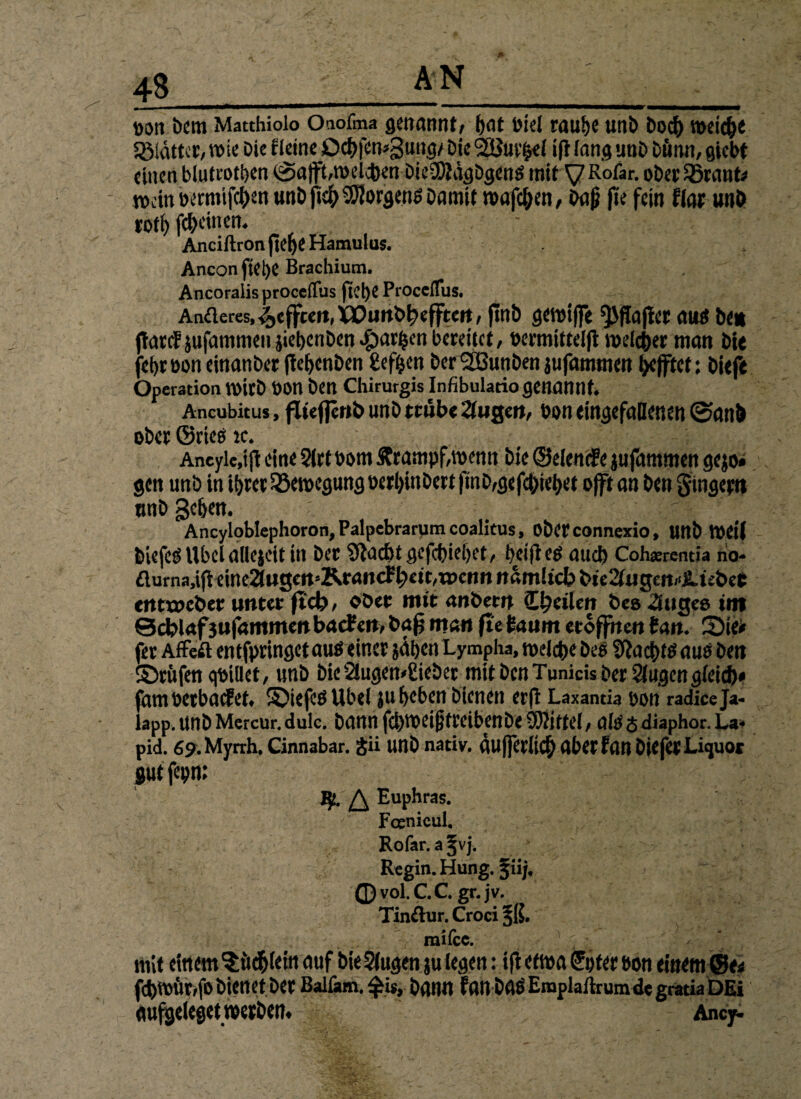 48 AN
von dem Matthiolo Onosma genannt, hat viel rauhe und doch weiche
Blätter, wie die kleine Ochsen-Zung/ die Wurtzel ist lang und dünn, giebt
einen blutrothen Safft, welchen die Mägdgens mit 🜄 Rosar. oder Brant-
wein vermischen und sich Morgens damit waschen, daß sie fein klar und
roth scheinen.
Ancistron siehe Hamulus.
Ancon siehe Brachium.
Ancoralis processus siehe Processus.
Ancteres, Hefften, Wundhefften, sind gewisse Pflaster aus dem
starck zusammen ziehenden Hartzen bereitet, vermittelst welcher man die
sehr von einander stehenden Leftzen der Wunden zusammen hefftet: diese
Operation wird von den Chirurgis Infibulatio genannt.
Ancubitus, fliessend und trübe Augen, von eingefallenen Sand
oder Gries ꝛc.
Ancyle, ist eine Art vom Krampf, wenn die Gelencke zusammen gezo-
gen und in ihrer Bewegung verhindert sind, geschiehet offt an den Fingern
und Zehen.
Ancyloblephoron, Palpebrarum coalitus, oder connexio, und weil
dieses Ubel allezeit in der Nacht geschiehet, heist es auch Cohærentia no-
cturna, ist eine Augen-Kranckheit, wenn nämlich die Augen-Lieder
entweder unter sich, oder mit andern Theilen des Auges im
Schlaf zusammen backen, daß man sie kaum eröffnen kan. Die-
ser Affect entspringet aus einer zähen Lympha, welche des Nachts aus den
Drüsen qvillet, und die Augen-Lieder mit den Tunicis der Augen gleich-
sam verbacket. Dieses Ubel zu heben dienen erst Laxantia von radice Ja-
lapp. und Mercur. dulc. dann schweißtreibende Mittel, als ♁ diaphor. La-
pid. 69. Myrrh. Cinnabar. ♁ii und nativ. äusserlich aber kan dieser Liquor
gut seyn:
℞. △ Euphras.
Fœnicul.
Rosar. a ℥vj.
Regin. Hung. ℥iij.
🜕 vol. C. C. gr. jv.
Tinctur. Croci ℥ß.
misce.
mit einem Tüchlein auf die Augen zu legen: ist etwa Eyter von einem Ge-
schwür, so dienet der Balsam. ♃is, dann kan das Emplastrum de gratia DEi
aufgeleget werden.
Ancy-